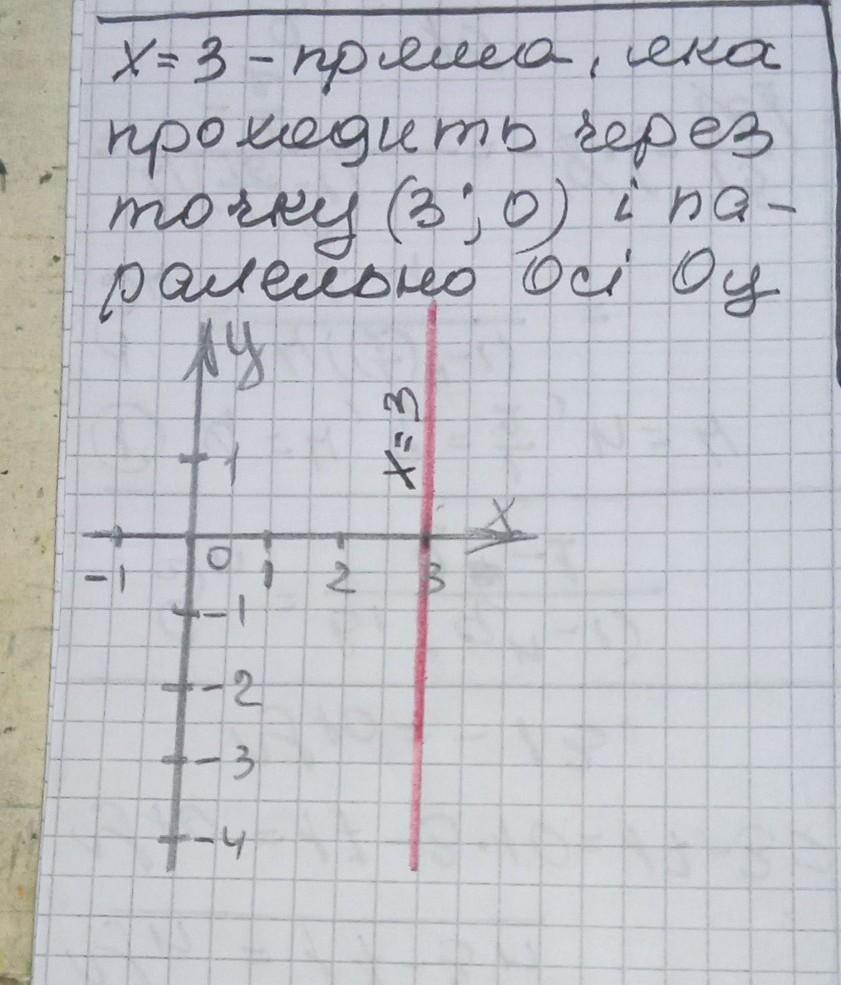 x=3 - пряма, яка
проходить через
точку (3; 0) і па-
ралельно осі Оу
y
x=3
1
x
-1 0 1 2 3
-1
-2
-3
-4